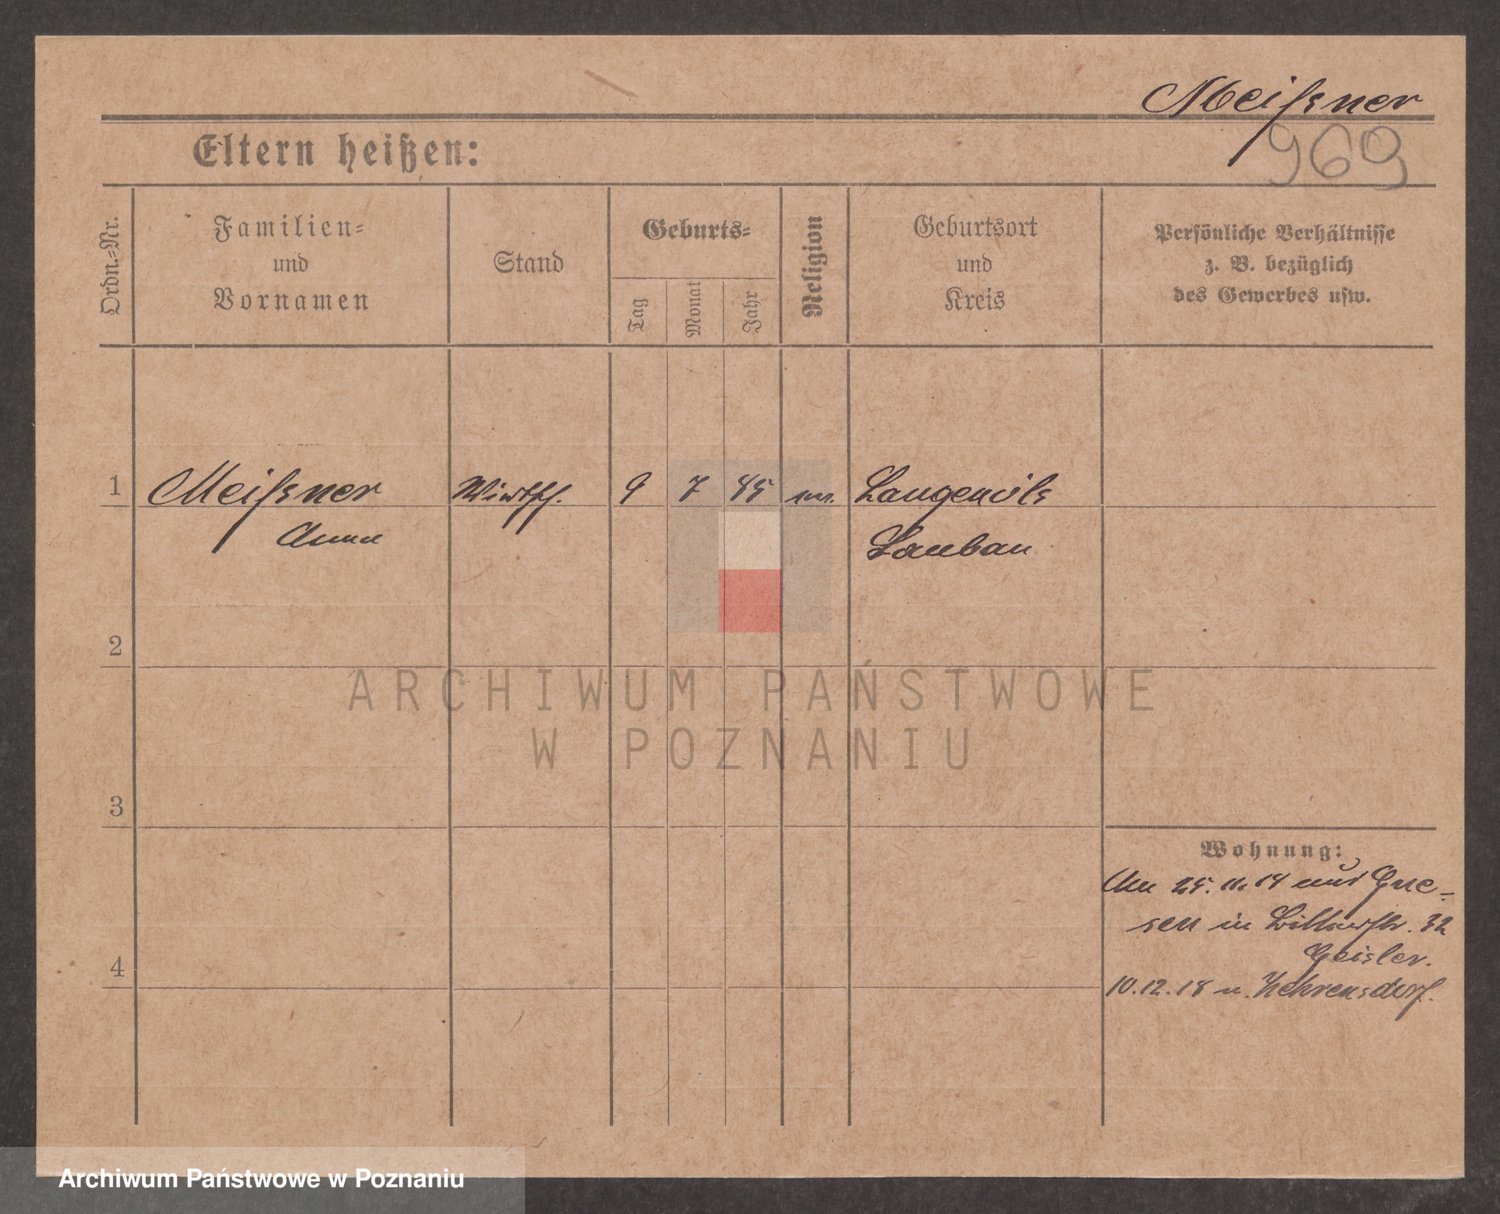 Meißner
969
Eltern heißen:
Ordn.-Nr.
Familien-
und
Vornamen
Stand
Geburts-
Tag
Monat
Jahr
Religion
Geburtsort
und
Kreis
Persönliche Verhältnisse
z. B. bezüglich
des Gewerbes usw.
1 Meißner Wirtsch. 9 7 45 Langenöls
Anna Lauban
2
3
4
ARCHIWUM PAŃSTWOWE
W POZNANIU
Wohnung:
Am 25. 11. 14 aus Gne-
sen in 32
Geisler.
10.12.18 n.
Archiwum Państwowe w Poznaniu